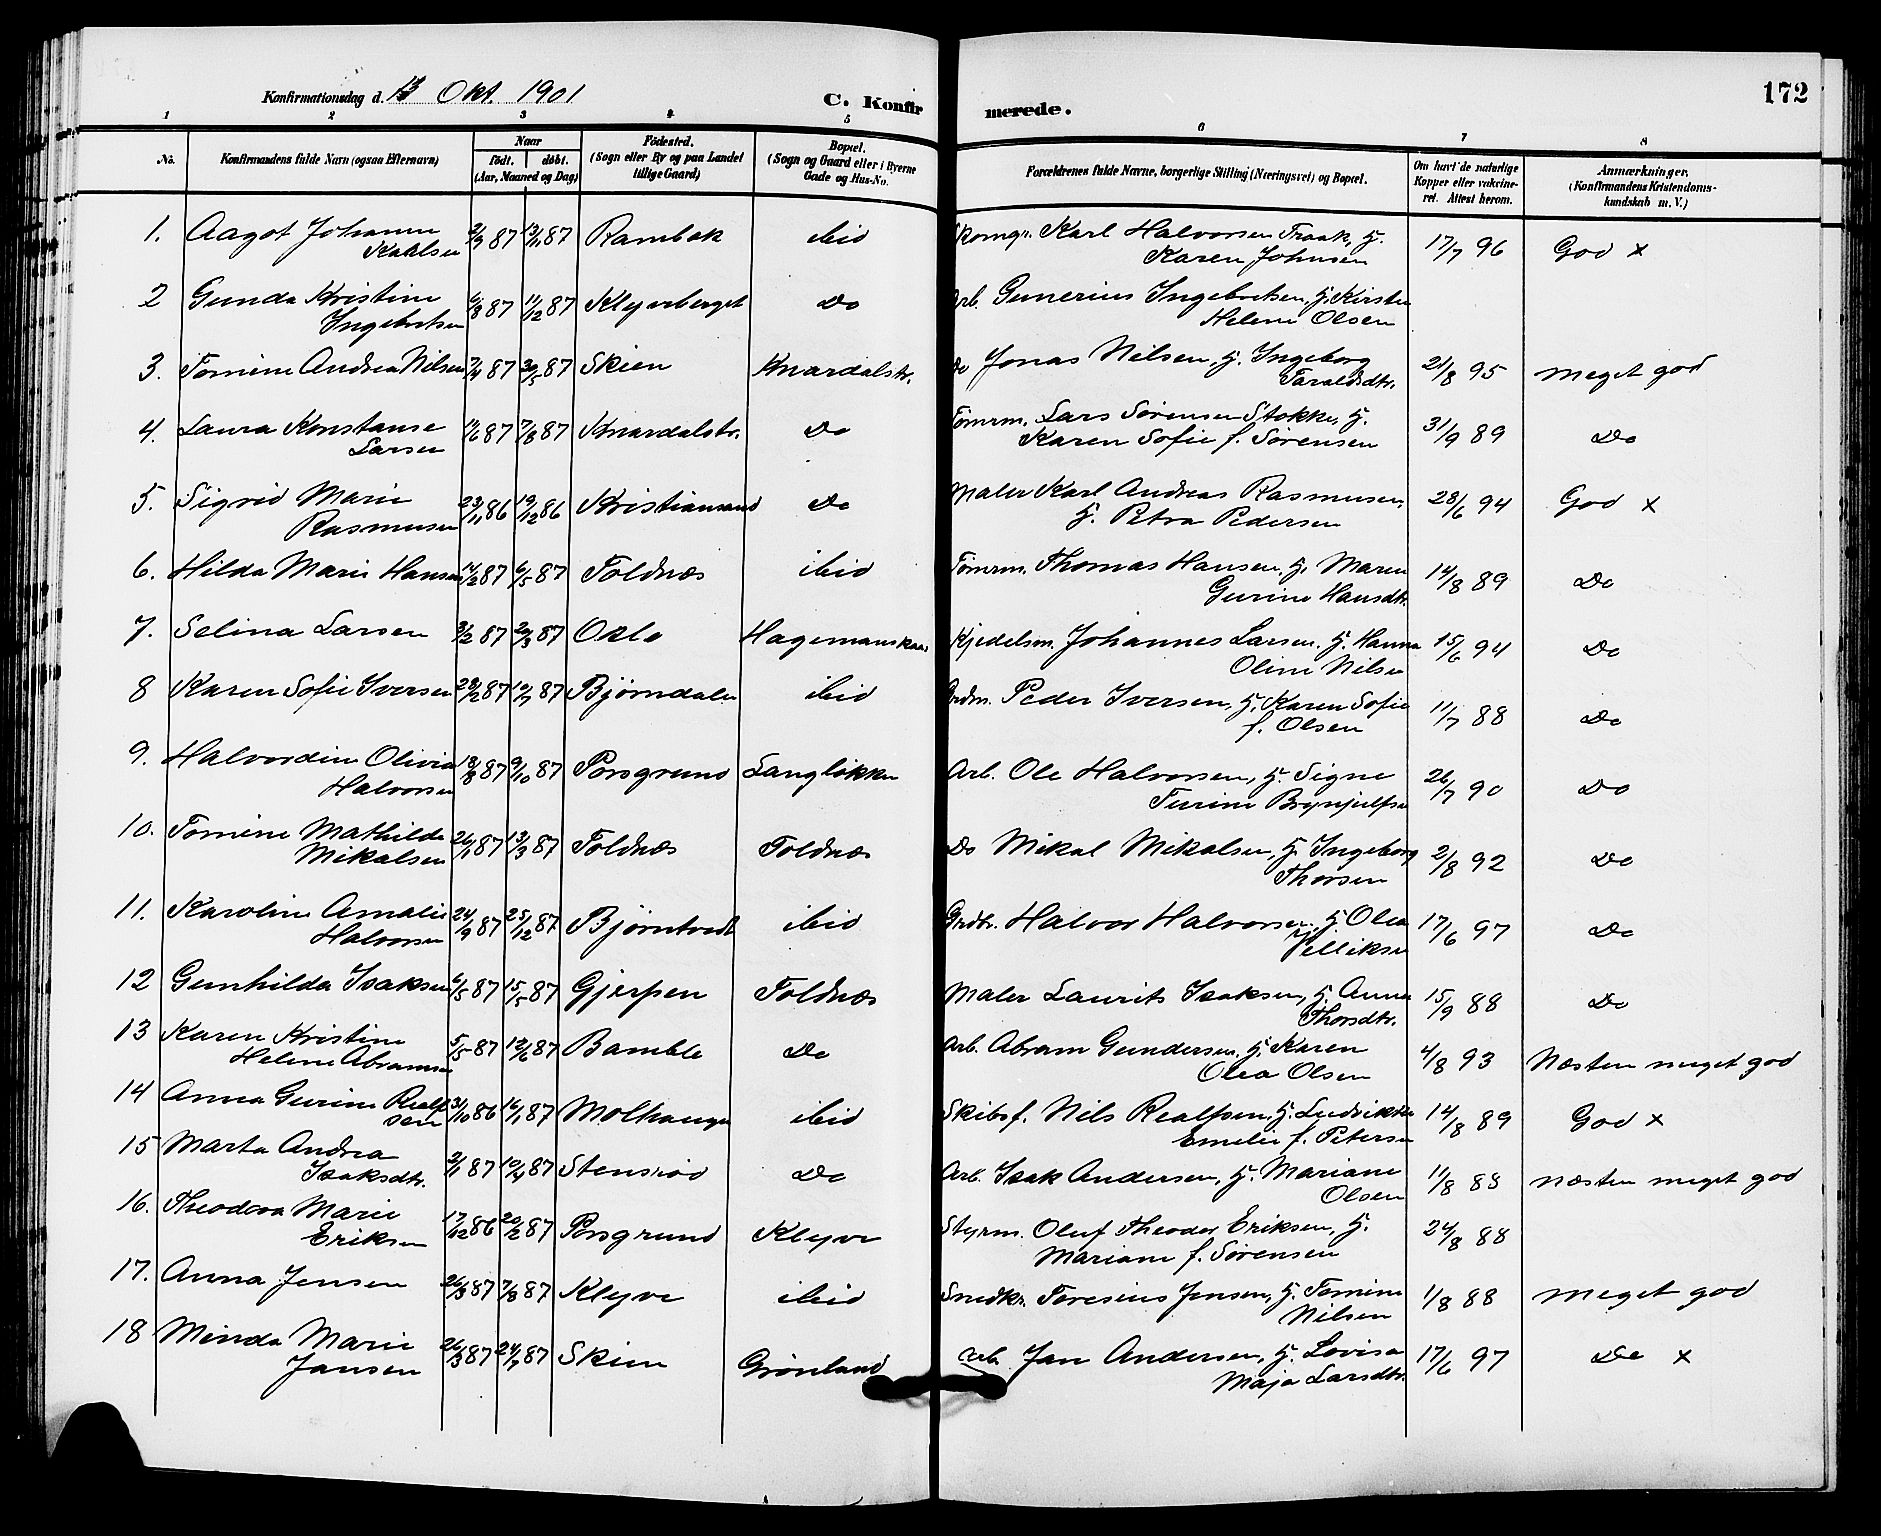 172
Konfirmationsdag d. 13 Okt. 1901
C. Konfir merede.
1 2 3 4 5 6 7 8
No. Konfirmandens fulde Navn (ogsaa Efternavn) Naar født. døbt. (Aar, Maaned og Dag) Fødested. (Sogn eller By og paa Landet tillige Gaard) Bopæl. (Sogn og Gaard eller i Byerne Gade og Hus-No. Forældrenes fulde Navne, borgerlige Stilling (Næringsvei) og Bopæl. Om havt de naturlige Kopper eller vakcineret. Attest herom. Anmærkninger. (Konfirmandens Kristendomskundskab m. V.)
1. Aagot Johanne 2/9 87 13/11 87 Rambæk ibid Skomgr. Karl Halvorsen Traak, H. 17/7 96 God x
Karlsen Karen Johnsen
2 Gunda Kristine 6/8 87 11/12 87 Klejveberget Do Arb. Gunerius Ingebretsen, H. Kirsten
Ingebretsen Helene Olsen
3. Tomine Andrea Nilsen 7/4 87 30/5 87 Skien Knardalstr. Do Jonas Nilsen, H. Ingeborg 21/8 95 Meget god
Taraldsdtr.
4. Laura Konstanse 11/6 87 7/8 87 Knardalstr. Do Tømrm. Lars Sørensen Stokke, H. 31/9 89 Do
Larsen Karen Sofie f. Sørensen
5. Sigrid Marie 23/11 86 19/12 86 Kristiansand Do Maler Karl Andreas Rasmussen, 28/6 94 God x
Rasmusen H. Petra Pedersen
6. Hilda Marie Hansen 14/2 87 6/5 87 Toldnæs ibid Tømrm. Thomas Hansen, H. Maren 14/8 89 Do
Gurine Hansdtr.
7. Selina Larsen 3/2 87 20/3 87 Oslo Hagemanskaas Kjedelsm. Johannes Larsen, H. Hanna 15/6 94 Do
Oline Nilsen
8 Karen Sofie Iversen 28/2 87 10/7 87 Bjørndalen ibid Grdm. Peder Iversen, H. Karen Sofie 11/7 88 Do
f. Olsen
9. Halvordine Olivia 18/8 87 9/10 87 Porsgrund Langløkken Arb. Ole Halvorsen, H. Signe 26/7 90 Do
Halvorsen Turine Brynjulfsen
10. Tomine Mathilde 26/1 87 13/3 87 Toldnæs Toldnæs Do Mikal Mikalsen, H. Ingeborg 2/8 92 Do
Mikalsen Thorsen
11. Karoline Amalie 24/9 87 25/12 87 Bjørntvedt ibid Grdbr. Halvor Halvorsen, H. Olea 17/6 97 Do
Halvorsen Jelliksen
12 Gunhilda Isaksen 6/5 87 15/5 87 Gjerpen Toldnæs Maler Laurits Isaksen, H. Anna 15/9 88 Do
Thorsdtr.
13 Karen Kristine 5/5 87 12/6 87 Bamble Do Arb. Abram Gundersen, H. Karen 4/8 93 Næsten meget god
Helene Abramsen Olea Olsen
14 Anna Gurine Realf 31/10 86 16/1 87 Molhaugen ibid Skibsf. Nils Realfsen, H. Ludvikke 14/8 89 God x
sen Emelie f. Petersen
15 Marta Andrea 2/1 87 10/4 87 Stensrød Do Arb. Isak Andersen, H. Mariane 11/8 88 Næsten meget god
Isaksdtr. Olsen
16. Theodora Marie 17/12 86 20/2 87 Porsgrund Klejve Styrm. Oluf Theodor Eriksen, H. 24/8 88
Eriksen Mariane f. Sørensen
17. Anna Jensen 26/3 87 7/8 87 Klejve ibid Snedkr. Toresius Jensen, H. Tomine 1/8 88 Meget god
Nilsen
18 Minda Marie 26/3 87 24/7 87 Skien Grønland Arb. Jan Andersen, H. Lovisa 17/6 97 Do x
Jansen Maja Larsdtr.